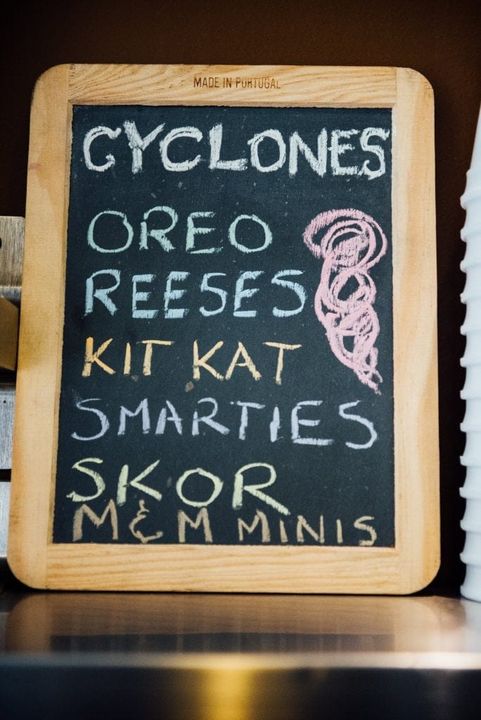 MADE IN PORTUGAL
CYCLONES
OREO
REESES
KIT KAT
SMARTIES
SKOR
M & M MINIS